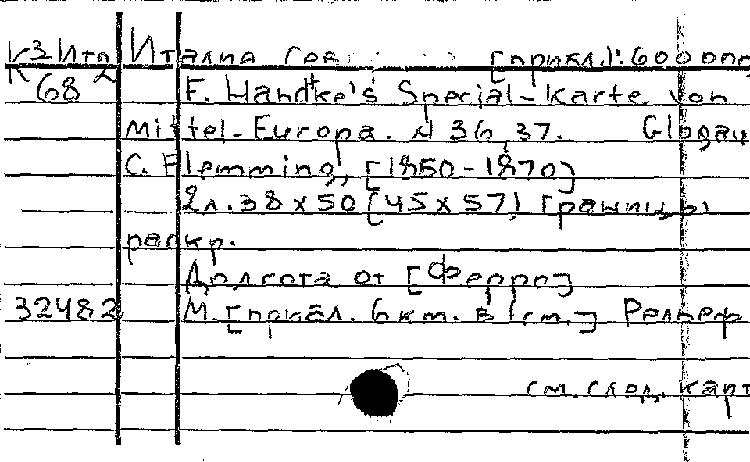 К3 Ита Италия Сев [прибл.]: 600 000
К 2
68 F. Handtke's Special-Karte von
Mittel-Europa. N 36, 37. Glogau
C. Flemming, [1850-1870]
2л. 38 x 50 [45 x 57] границы
раскр.
Долгота от [Ферро]
32482 М. [прибл. 6 км. в 1 см.] Рельеф
см. след. карт